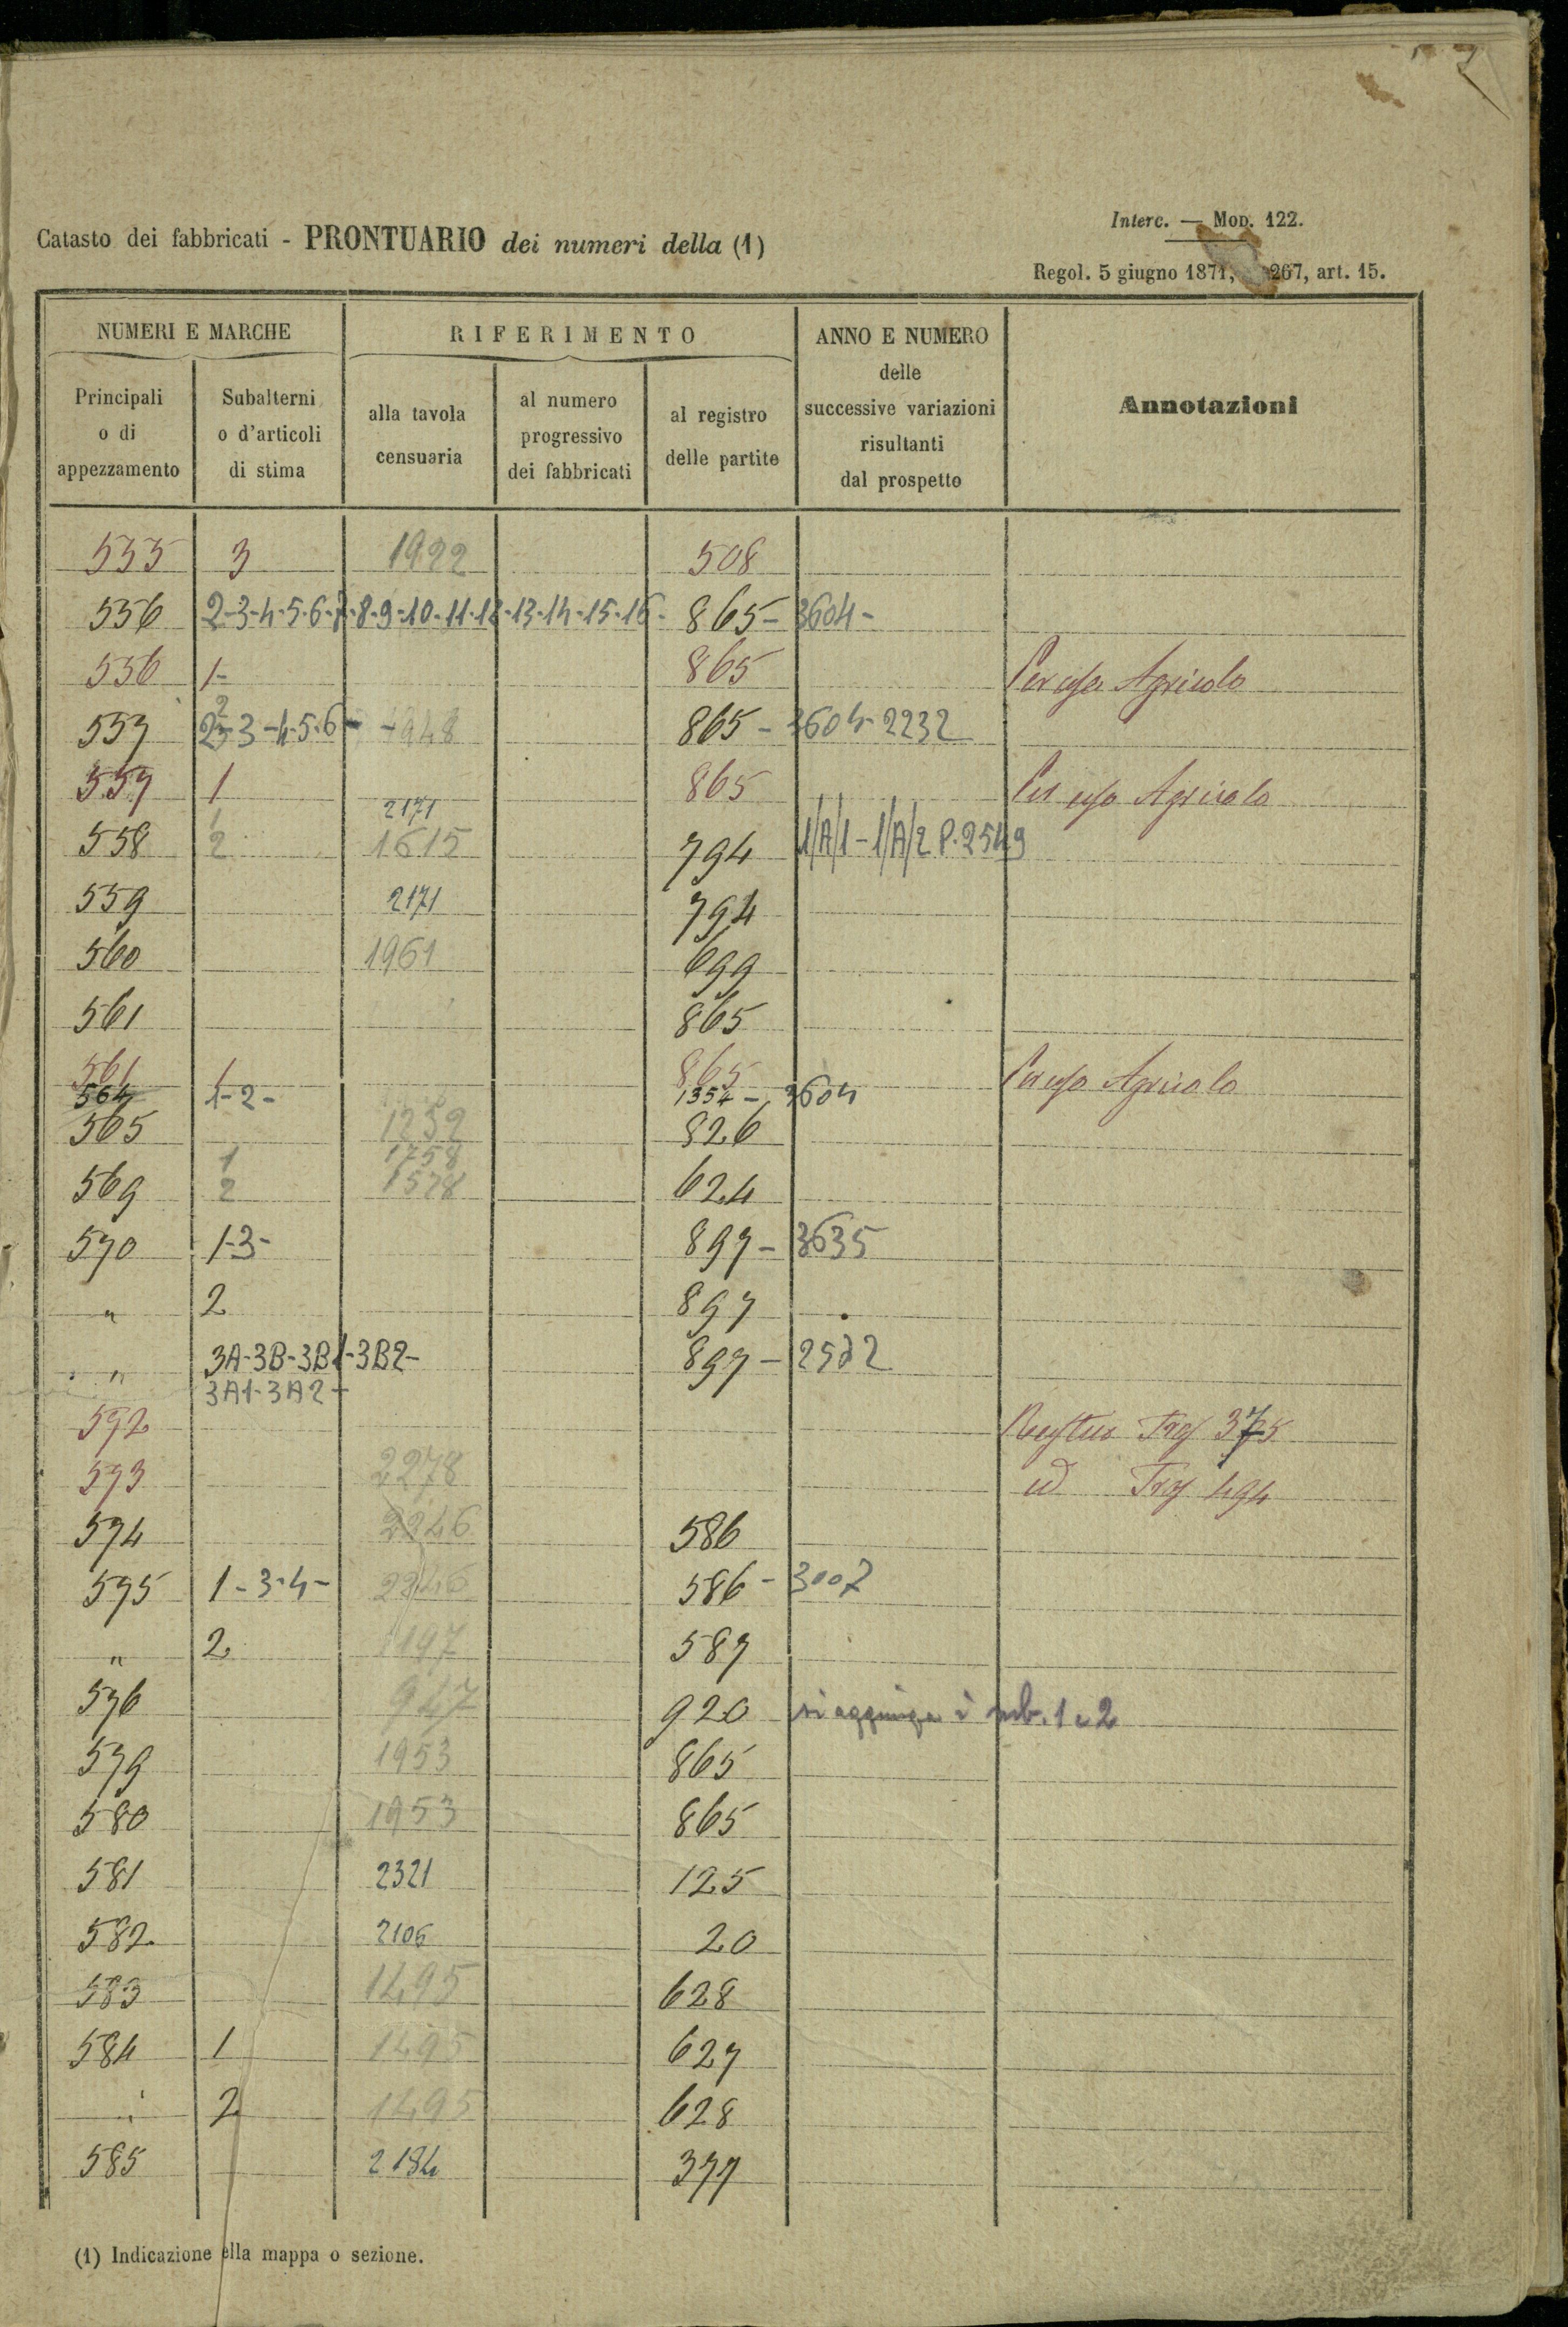 Interc. — Mod. 122.
Catasto dei fabbricati - PRONTUARIO dei numeri della (1)
Regol. 5 giugno 1871, 267, art. 15.
NUMERI E MARCHE RIFERIMENTO ANNO E NUMERO delle successive variazioni risultanti dal prospetto Annotazioni
Principali o di appezzamento Subalterni o d'articoli di stima alla tavola censuaria al numero progressivo dei fabbricati al registro delle partite
555 3 1922 508
556 2-3-4-5-6-7-8-9-10-11-12-13-14-15-16- 865- 3604-
556 1- 865 Per uso Agricolo
557 3-4-5-6- 865- 3604-2232
557 1 865 Per uso Agricolo
1 2171
558 2 1615 794 1/A/1-1/A/2 P.2549
559 2171 794
560 1961 699
561 865
561 1 865 Per uso Agricolo
564 1-2- 1354- 3604
565 1252 826
1 1758
569 2 1578 624
570 1-3- 897- 3635
" 2 897
" 3A-3B-3B1-3B2- 897-
3A1-3A2-
572 375
573 2278 id 494
574 2246 586
575 1-3-4- 2246 586- 3007
" 2 1197 587
576 947 920 si aggiunga i sub. 1 e 2
579 1953 865
580 1953 865
581 2321 125
582 2106 20
583 1495 628
584 1 1495 627
" 2 1495 628
585 2184 377
(1) Indicazione ella mappa o sezione.